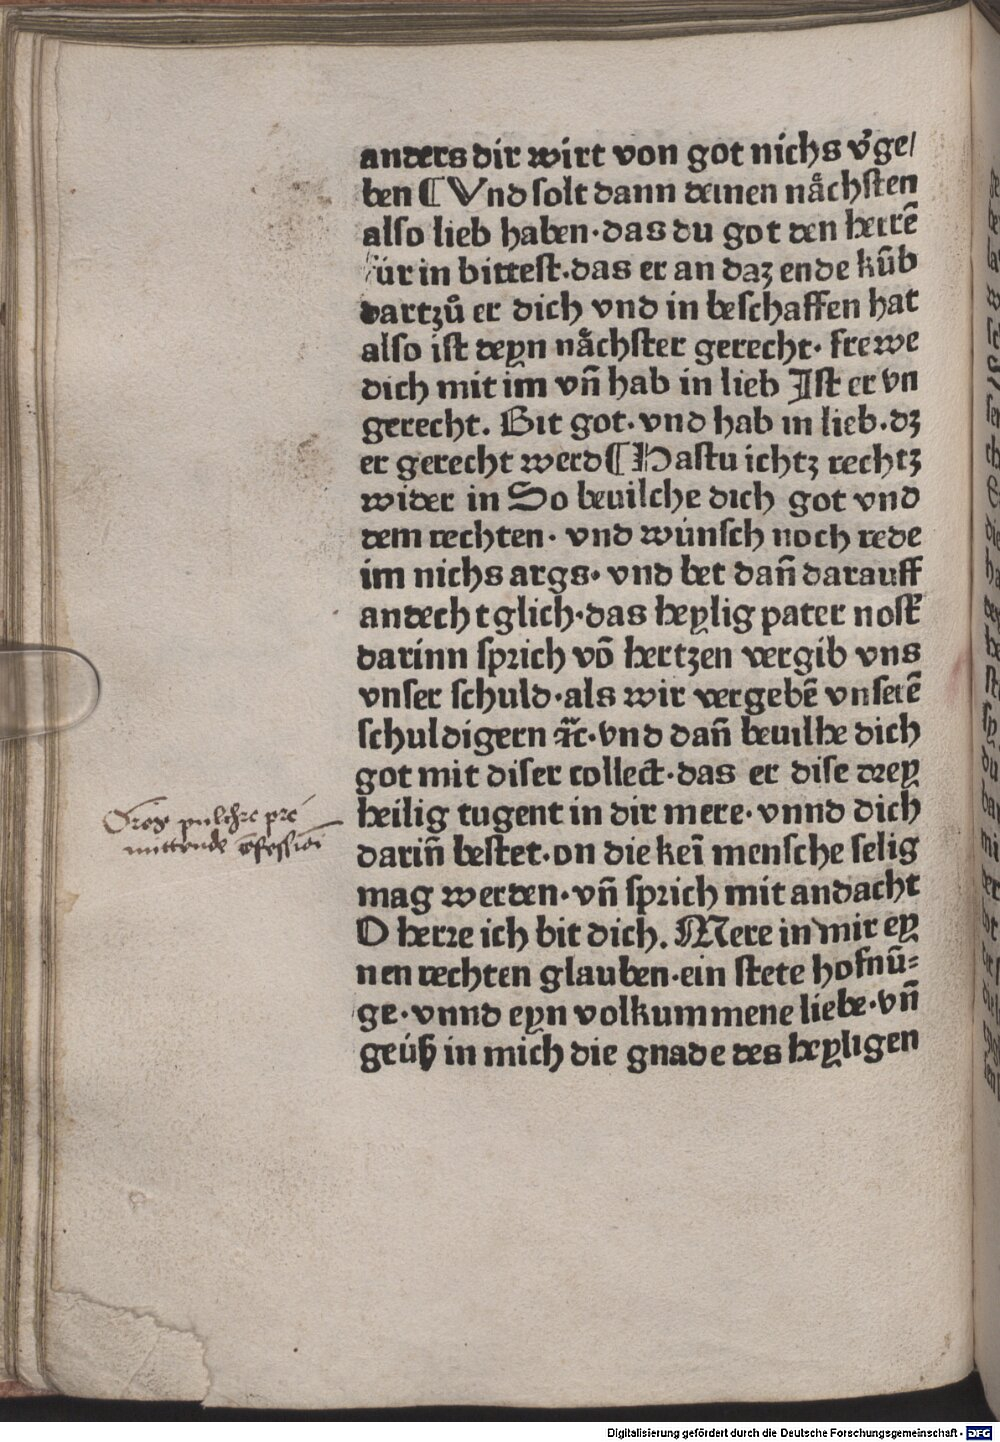 anders dir wirt von got nichs v̓ge/
ben ¶ Vnd solt dann deinen nåchsten
also lieb haben·das du got den herrē
für in bittest·das er an daʒ ende kūb
dartzů er dich vnd in beschaffen hat
also ist deyn nåchster gerecht· frewe
dich mit im vn̄ hab in lieb Ist er vn
gerecht. Bit got· vnd hab in lieb·dʒ
er gerecht werd ¶ Hastu ichtʒ rechtʒ
wider in So beuilche dich got vnd
dem rechten· vnd wünsch noch rede
im nichs args· vnd bet dan̄ darauff
andechtglich·das heylig pater nost̓
darinn sprich vō hertzen vergib vns
vnser schuld·als wir vergebē vnserē
schuldigern ⁊c̄·vnd dan̄ beuilhe dich
got mit diser collect·das er dise drey
heilig tugent in dir mere· vnnd dich
darin̄ bestet·on die keī mensche selig
mag werden· vn̄ sprich mit andacht
O herre ich bit dich. Mere in mir ey
nen rechten glauben·ein stete hofnū=
ge·vnnd eyn volkummene liebe·vn̄
geüß in mich die gnade des heyligen
pulchre pre
mittende
Digitalisierung gefördert durch die Deutsche Forschungsgemeinschaft - DFG